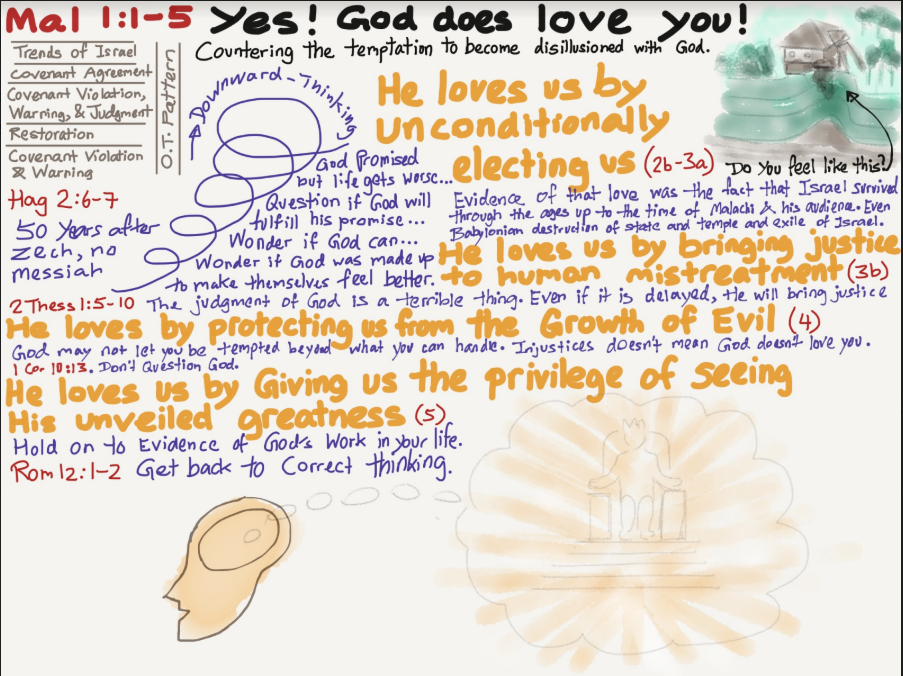 Mal 1:1-5 Yes! God does love you!
Countering the temptation to become disillusioned with God.
Trends of Israel
Covenant Agreement
Covenant Violation,
Warning, & Judgment
Restoration
Covenant Violation
& Warning
O.T. Pattern
Downward-Thinking
God Promised
but life gets worse...
Question if God will
fulfill his promise...
Wonder if God can...
Wonder if God was made up
to make themselves feel better.
Hag 2:6-7
50 years after
Zech, no
messiah
He loves us by
unconditionally
electing us (2b-3a)
Do you feel like this?
Evidence of that love was the fact that Israel survived
through the ages up to the time of Malachi & his audience. Even
Babylonian destruction of state and temple and exile of Israel.
He loves us by bringing justice
to human mistreatment (3b)
2 Thess 1:5-10 The judgment of God is a terrible thing. Even if it is delayed, He will bring justice
He loves by protecting us from the Growth of Evil (4)
God may not let you be tempted beyond what you can handle. Injustices doesn't mean God doesn't love you.
1 Cor 10:13. Don't Question God.
He loves us by Giving us the privilege of seeing
His unveiled greatness (5)
Hold on to Evidence of God's Work in your life.
Rom 12:1-2 Get back to Correct thinking.